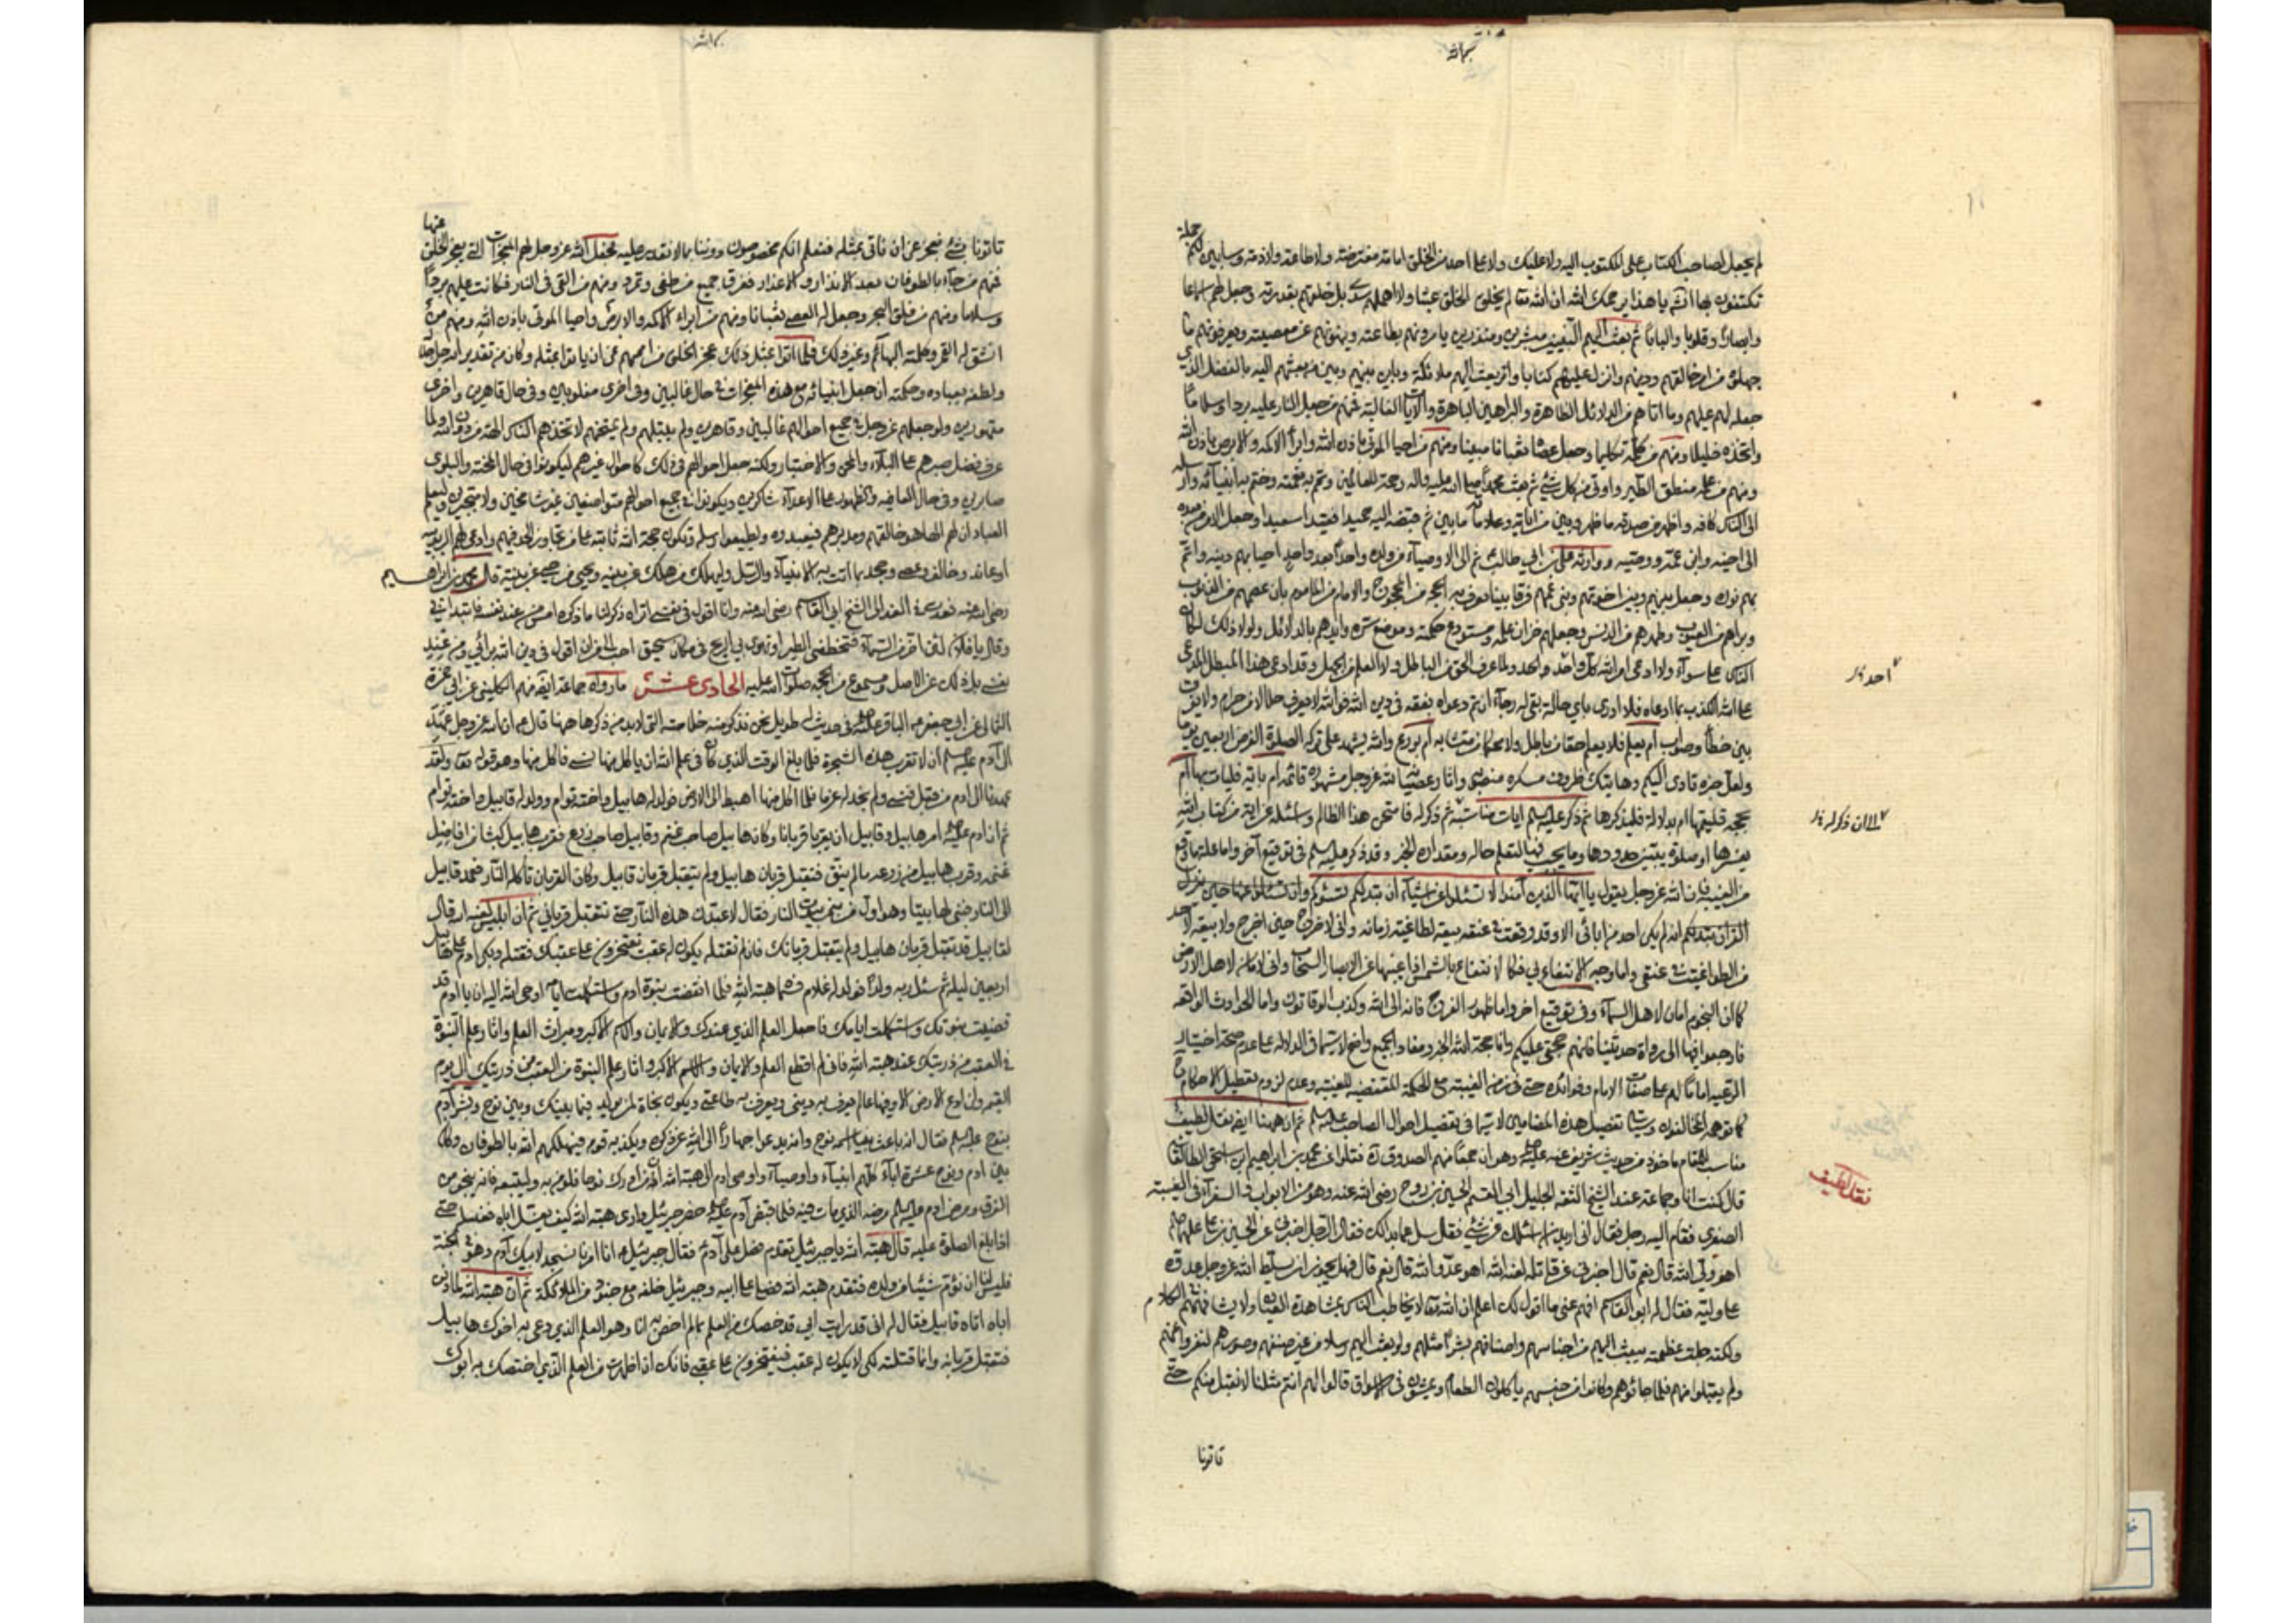 بسم الله
جملة
لم يجعل لصاحب الكتاب على المكتوب اليه ولا عليك ولا على احد من الخلق امامة مفترضة ولا طاعة ولا ذمة وسابين لكم
تكتفون بها انه يا هذا يرحمك الله ان الله تعا لم يخلق الخلق عبثا ولا اهملهم سدى بل خلقهم بقدرته وجعل لهم اسماعا
وابصارا وقلوبا والبابا ثم بعث اليهم النبيين مبشرين ومنذرين يامرونهم بطاعته وينهونهم عن معصيته ويعرفونهم ما
جهلوه من امر خالقهم ودينهم وانزل عليهم كتابا وبعث اليهم ملائكة وباين بينهم وبين من بعثهم اليه بالفضل الذي
جعله لهم عليهم وما اتاهم من الدلائل الظاهرة والبراهين الباهرة والآيات الغالبة فمنهم من جعل النار عليه بردا وسلاما
واتخذه خليلا ومنهم من كلمه تكليما وجعل عصاه ثعبانا مبينا ومنهم من احيا الموتى باذن الله وابرأ الاكمه والابرص باذن الله
ومنهم من علمه منطق الطير واوتي من كل شئ ثم بعث محمدا صلى الله عليه واله رحمة للعالمين وتمم به نعمته وختم به انبيائه وارسله
الى الناس كافة واظهر من صدقه ما ظهر وبين من اياته وعلاماته ما بين ثم قبضه اليه حميدا فقيدا سعيدا وجعل الامر من بعده
الى اخيه وابن عمه ووصيه ووارثه علي بن ابي طالب ثم الى الاوصياء من ولده واحدا بعد واحد احيا بهم دينه واتم
بهم نوره وجعل بينهم وبين اخوتهم وبني عمهم فرقا بينا تعرف به الحجة من المحجوج والامام من الماموم بان عصمهم من الذنوب
وبراهم من العيوب وطهرهم من الدنس وجعلهم خزان علمه ومستودع حكمته وموضع سره وايدهم بالدلائل ولولا ذلك لكان
الناس على سواء ولادعى امر الله كل واحد ولما عرف الحق من الباطل ولا العلم من الجهل وقد ادعى هذا المبطل المدعي
على الله الكذب بما ادعاه فلا ادري باي حالة هي له رجاء ان يتم دعواه بفقه في دين الله فوالله لا يعرف حلالا من حرام ولا يفرق
بين خطأ وصواب ام بعلم فلا يعلم حقا من باطل ولا محكما من متشابه ام بورع والله يشهد على تركه الصلوة الفرض اربعين يوما
ولعل خبره تادى اليكم وهاتيك ظروف مسكره منصوبة واثار عصيانه لله عز وجل مشهورة قائمة ام باية فليات بها ام
بحجة فليقمها ام بدلالة فليذكرها ثم ذكر عليه السلم ايات مناسبة ثم ذكر له فامتحن هذا الظالم وسائله عن اية من كتاب الله
يفسرها او صلوة يبين حدودها وما يجب فيها لتعلم حاله ومقداره الخبر وقد ذكر عليه السلم في توقيع آخر واما علة ما وقع
من الغيبة فان الله عز وجل يقول يا ايها الذين آمنوا لا تسئلوا عن اشياء ان تبد لكم تسؤكم وان تسئلوا عنها حين ينزل
القران تبد لكم انه لم يكن احد من ابائي الا وقد وقعت في عنقه بيعة لطاغية زمانه واني لاخرج حين اخرج ولا بيعة لاحد
من الطواغيت في عنقي واما وجه الانتفاع بي فكالانتفاع بالشمس اذا غيبها عن الابصار السحاب واني لامان لاهل الارض
كما ان النجوم امان لاهل السماء وفي توقيع اخر واما ظهور الفرج فانه الى الله وكذب الوقاتون واما الحوادث الواقعة
فارجعوا فيها الى رواة حديثنا فانهم حجتي عليكم وانا حجة الله الخبر ومفاد الجميع واضح لا سيما في الدلالة على عدم صحة اختيار
الرعية اماما لهم على صفات الامام وفوائده حتى في زمن الغيبة مع الحكمة المقتضية للغيبة وعدم لزوم تعطيل الاحكام
كما توهمه المخالفون وسياتي تفصيل هذه المضامين لا سيما في تفصيل احوال الصاحب عليه السلم ثم ان ههنا ايضا نقل لطيف
مناسب للمقام ماخوذ من حديث شريف عنه عليه السلم وهو ان جمعا منهم الصدوق ره نقلوا عن محمد بن ابراهيم بن اسحق الطالقاني
قال كنت انا وجماعة عند الشيخ الثقة الجليل ابي القسم الحسين بن روح رضي الله عنه وهو من الابواب السفراء في الغيبة
الصغرى فقام اليه رجل فقال اني اريد ان اسئلك عن شئ فقال سل عما بدا لك فقال الرجل اخبرني عن الحسين بن علي عليهما السلم
اهو ولي الله قال نعم قال اخبرني عن قاتله لعنه الله اهو عدو الله قال نعم قال فهل يجوز ان يسلط الله عز وجل عدوه
على وليه فقال له ابو القاسم افهم عني ما اقول لك اعلم ان الله تعا لا يخاطب الناس بمشاهدة العيان ولا يشافههم بالكلام
ولكنه جلت عظمته يبعث اليهم من اجناسهم واصنافهم بشرا مثلهم ولو بعث اليهم رسلا من غير صنفهم وصورهم لنفروا عنهم
ولم يقبلوا منهم فلما جاؤهم وكانوا من جنسهم ياكلون الطعام ويمشون في الاسواق قالوا لهم انتم مثلنا لا نقبل منكم حتى
تاتونا
نقل لطيف
بسم الله
عنها
تاتونا بشئ نعجز عن ان ناتي بمثله فنعلم انكم مخصوصون دوننا بما لا نقدر عليه فجعل الله عز وجل لهم المعجزات التي يعجز الخلق
فمنهم من جاء بالطوفان بعد الانذار والاعذار فغرق جميع من طغى وتمرد ومنهم من القي في النار فكانت عليه بردا
وسلاما ومنهم من فلق البحر وجعل له العصا ثعبانا ومنهم من ابراء الاكمه والابرص واحيا الموتى باذن الله ومنهم من
انشق له القمر وكلمته البهائم وغير ذلك فلما اتوا بمثل ذلك عجز الخلق من اممهم عن ان ياتوا بمثله وكان من تقدير الله جل جلاله
ولطفه بعباده وحكمته ان جعل انبيائه مع هذه المعجزات في حال غالبين وفي اخرى مغلوبين وفي حال قاهرين واخرى
مقهورين ولو جعلهم عز وجل في جميع احوالهم غالبين وقاهرين ولم يبتلهم ولم يمتحنهم لاتخذهم الناس الهة من دون الله ولما
عرف فضل صبرهم على البلاء والمحن والاختبار ولكنه جعل احوالهم في ذلك كاحوال غيرهم ليكونوا في حال المحنة والبلوى
صابرين وفي حال العافية والظهور على الاعداء شاكرين ويكونوا في جميع احوالهم متواضعين غير شامخين ولا متجبرين وليعلم
العباد ان لهم الها هو خالقهم ومدبرهم فيعبدوه ويطيعوا رسله وتكون حجة الله ثابتة على من تجاوز الحد فيهم وادعى لهم الربوبية
او عاند وخالف وعصى وجحد بما اتت به الانبياء والرسل وليهلك من هلك عن بينة ويحيى من حي عن بينة قال محمد بن ابراهيم
رضي الله عنه فعدت من الغد الى الشيخ ابي القاسم رضي الله عنه وانا اقول في نفسي اتراه ذكر لنا ما ذكره امس من عند نفسه فابتداني
وقال يا فلان لئن اخر من السماء فتخطفني الطير او تهوي بي الريح في مكان سحيق احب الي من ان اقول في دين الله برأيي ومن عند
نفسي بل ذلك عن الاصل ومسموع من الحجة صلوات الله عليه الحادي عشر ما رواه جماعة ايضا منهم الكليني عن ابي حمزة
الثمالي عن ابي جعفر الباقر عليه السلم في حديث له طويل نحن نذكر منه خلاصته التي لابد من ذكرها ههنا قال ع ان الله عز وجل عهد
الى آدم عليه السلم ان لا تقرب هذه الشجرة فلما بلغ الوقت الذي كان في علم الله ان ياكل منها نسي فاكل منها وهو قوله تعا ولقد
عهدنا الى ادم من قبل فنسي ولم نجد له عزما فلما اكل منها اهبط الى الارض فولد له هابيل واخته توام وولد له قابيل واخته توام
ثم ان ادم عليه السلم امر هابيل وقابيل ان يقربا قربانا وكان هابيل صاحب غنم وقابيل صاحب زرع فقرب هابيل كبشا من افاضل
غنمه وقرب قابيل من زرعه ما لم ينق فتقبل قربان هابيل ولم يتقبل قربان قابيل وكان القربان تاكله النار فعمد قابيل
الى النار فبنى لها بيتا وهو اول من بنى بيوت النار فقال لاعبدن هذه النار حتى تتقبل قرباني ثم ان ابليس لعنه الله قال
لقابيل قد تقبل قربان هابيل ولم يتقبل قربانك فان لم تقتله يكون له عقب يفتخرون على عقبك فقتله وبكى ادم على هابيل
اربعين ليلة ثم سئل ربه ولدا فولد له غلام فسماه هبة الله فلما انقضت نبوة ادم واستكملت ايامه اوحى الله اليه ان يا ادم قد
قضيت نبوتك واستكملت ايامك فاجعل العلم الذي عندك والايمان والاسم الاكبر وميراث العلم واثار علم النبوة
في العقب من ذريتك عند هبة الله فاني لم اقطع العلم والايمان والاسم الاكبر واثار علم النبوة من العقب من ذريتك الى يوم
القيمة ولن ادع الارض الا وفيها عالم يعرف به ديني ويعرف به طاعتي ويكون نجاة لمن يولد فيما بينك وبين نوح وبشر آدم
بنوح عليه السلم فقال ان الله باعث نبيا اسمه نوح وانه يدعو الى الله عز ذكره ويكذبه قومه فيهلكهم الله بالطوفان وكان
بين ادم ونوح عشرة اباء كلهم انبياء واوصياء واوصى ادم الى هبة الله ان من ادرك نوحا فليؤمن به وليتبعه فانه ينجو من
الغرق ومرض ادم عليه السلم مرضه الذي مات فيه فلما قبض آدم عليه السلم
اذا بلغ الصلوة عليه قال هبة الله يا جبرئيل تقدم فصل على آدم فقال جبرئيل ع انا امرنا بالسجود لابيك آدم وهو في الجنة
فليس لنا ان نؤم شيئا من ولده فتقدم هبة الله فصلى على ابيه وجبرئيل خلفه مع جنود من الملائكة ثم ان هبة الله لما دفن
اباه اتاه قابيل فقال له اني قد رايت ابي قد خصك من العلم بما لم اخص به انا وهو العلم الذي دعى به اخوك هابيل
فتقبل قربانه وانما قتلته لكي لا يكون له عقب فيفتخرون على عقبي فانك ان اظهرت من العلم الذي اختصك به ابوك